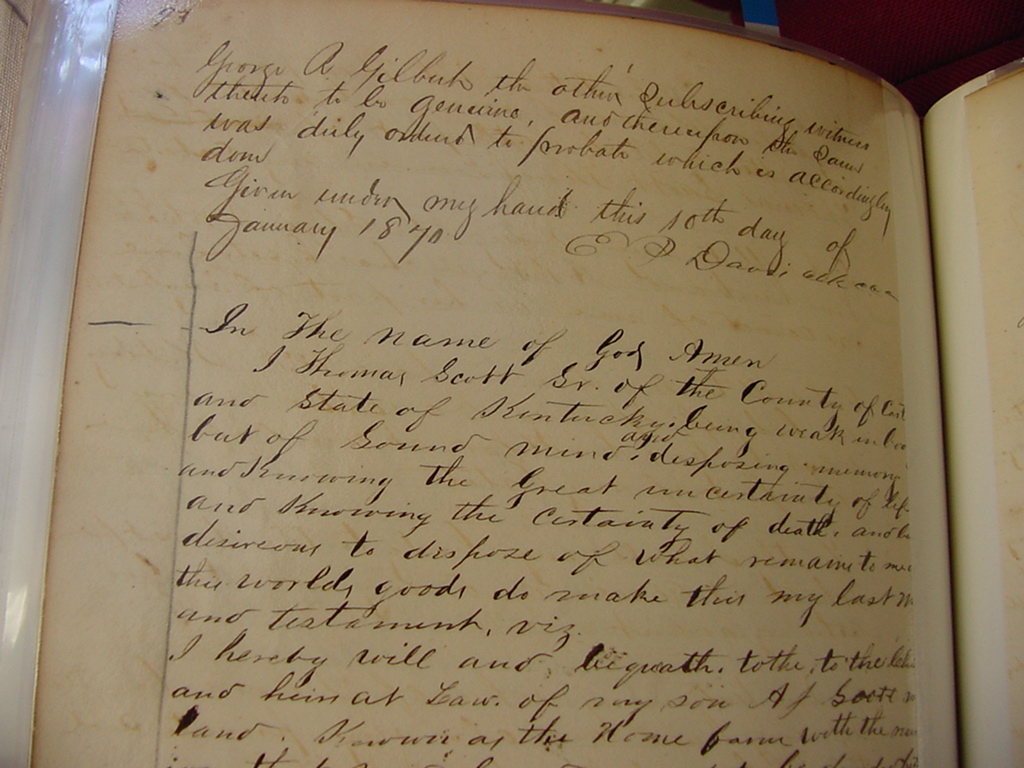 George R Gilbert the other Subscribing witness
thereto to be genuine, and thereupon the Same
was duly ordered to probate which is accordingly
done
Given under my hand this 10th day of
January 1870
E P Davis
In The name of God Amen
I Thomas Scott Sr. of the County of
and State of Kentucky being weak in
but of Sound mind and disposing memory
and Knowing the Great uncertainty of life
and Knowing the Certainty of death, and
desireous to dispose of what remains to me
this worlds goods do make this my last
and testament, viz.
I hereby will and bequath. to the, to the
and heirs at Law. of my son A J Scott
land. Known as the Home farm with the